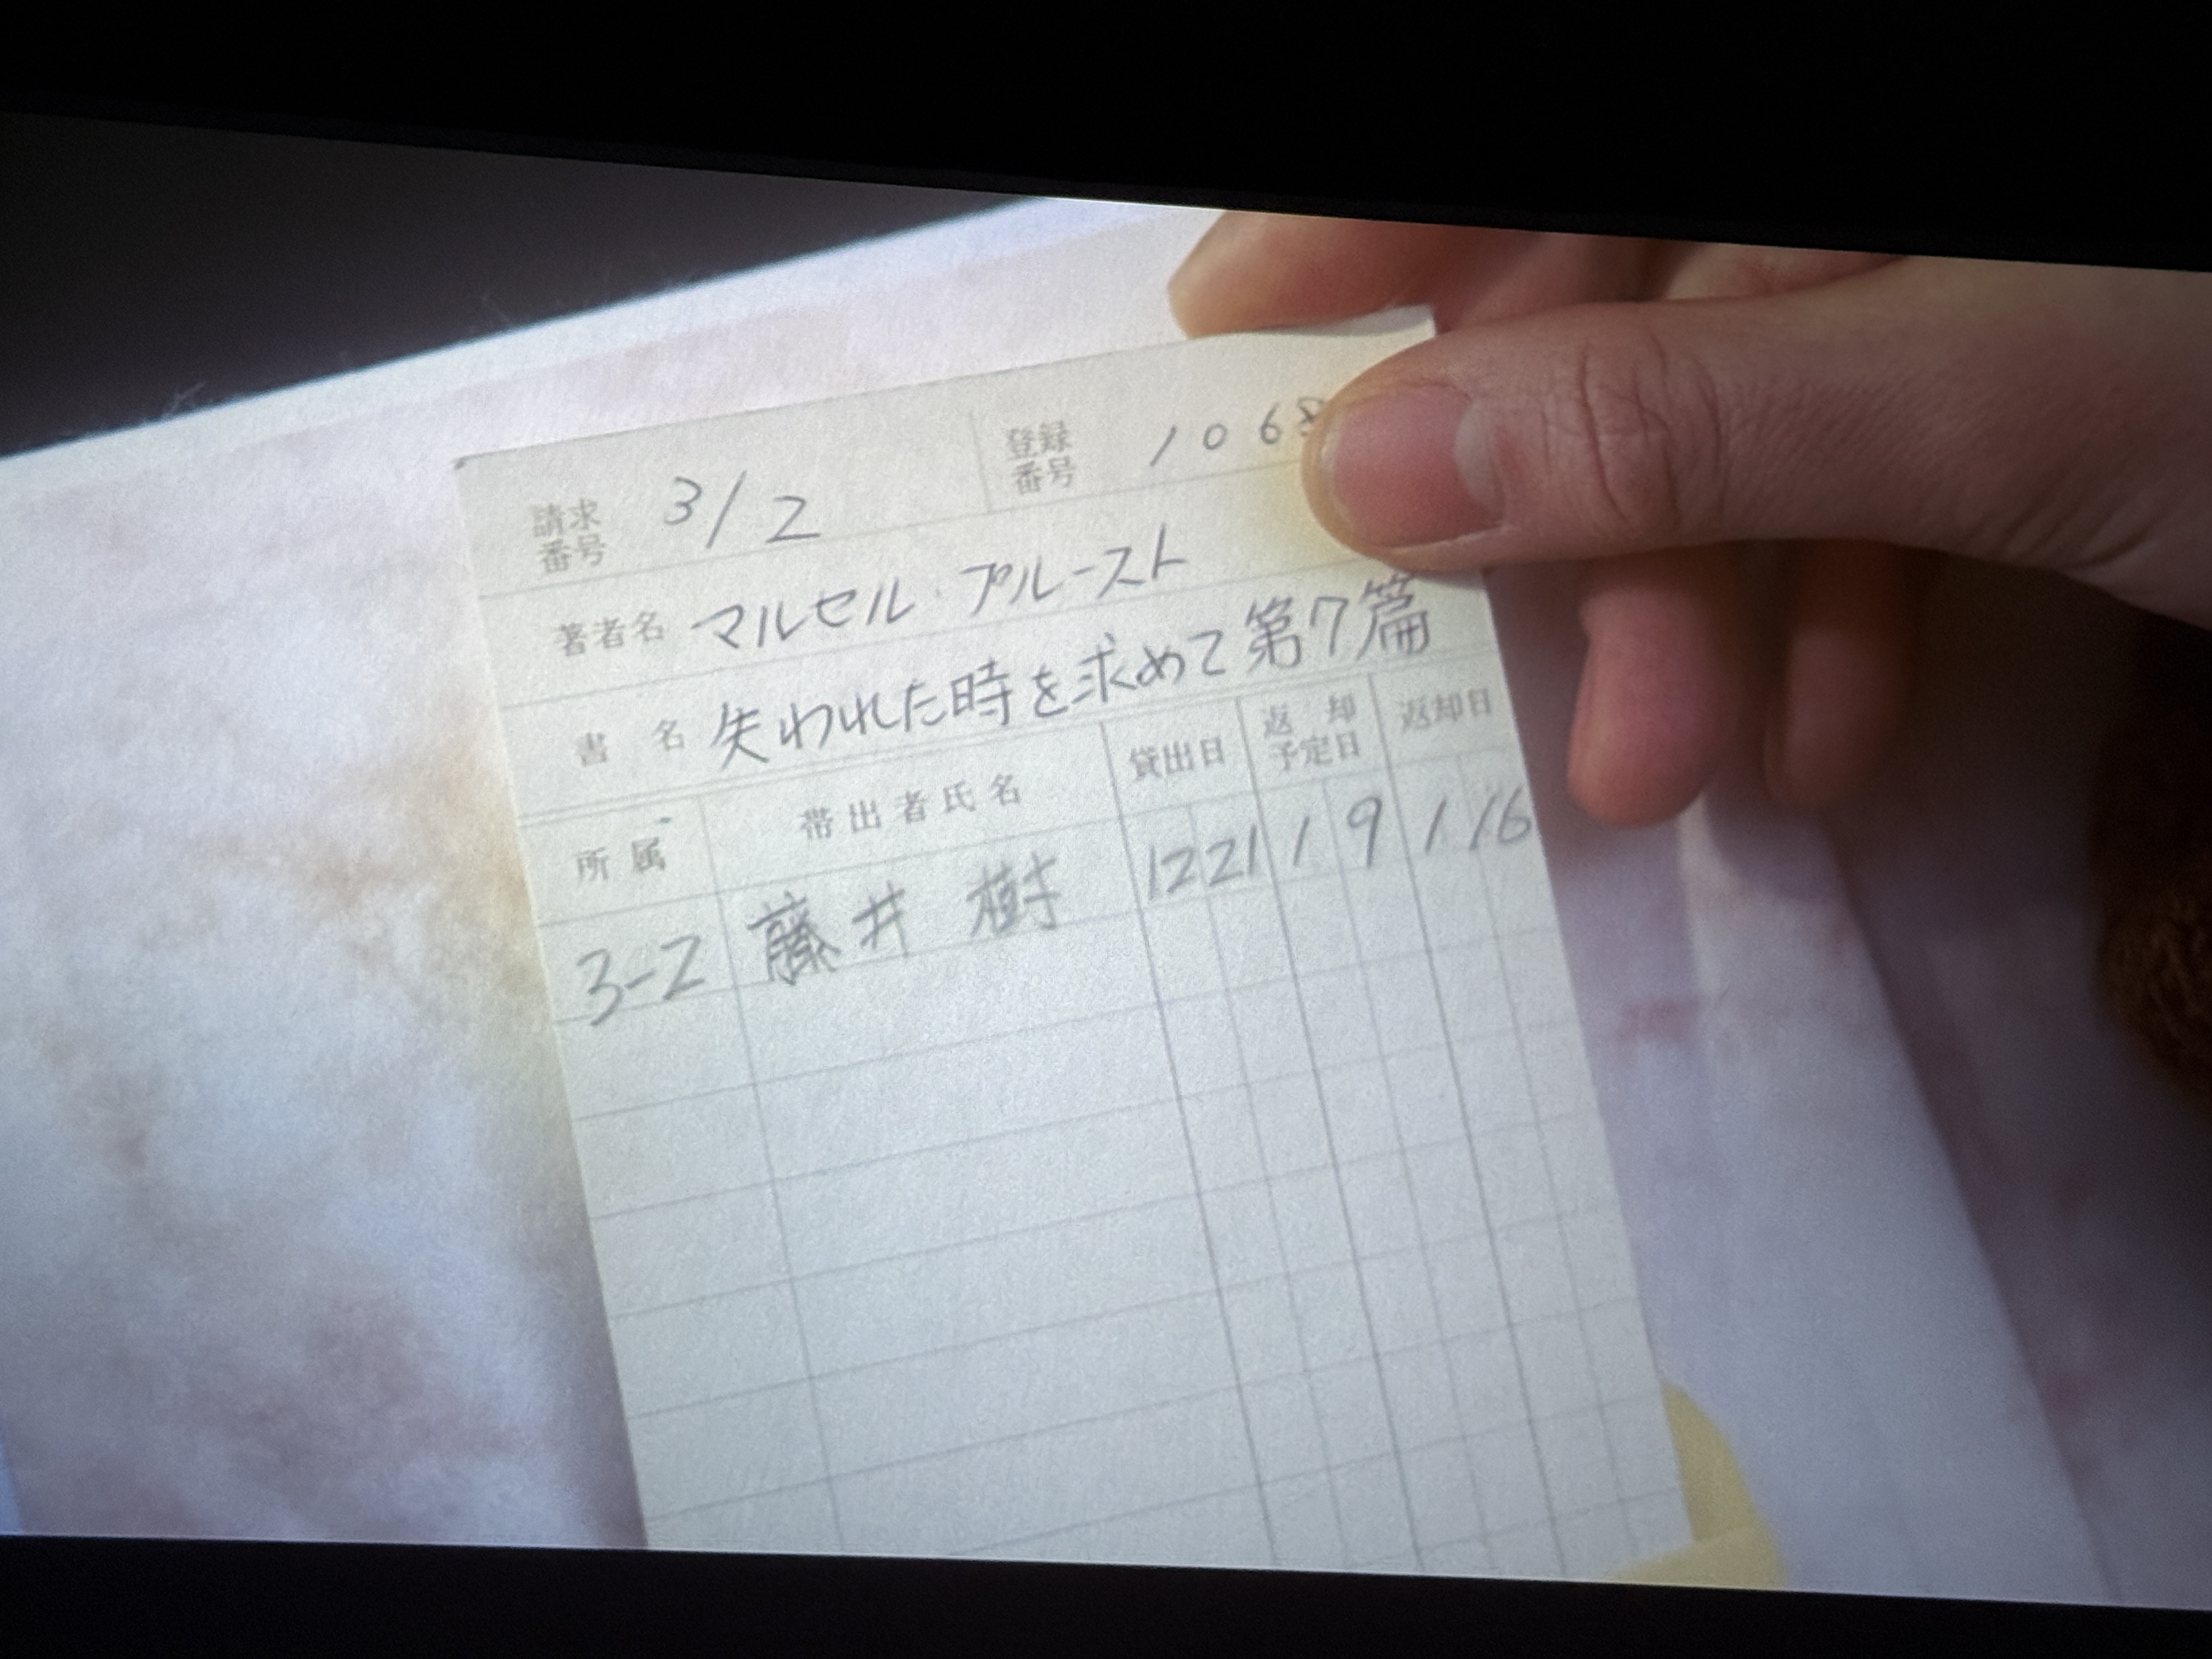 請求番号 3/2 登録番号 1068
著者名 マルセル・プルースト
書名 失われた時を求めて 第7篇
所属 帯出者氏名 貸出日 返却予定日 返却日
3-2 藤井 樹 12 21 1 9 1 16